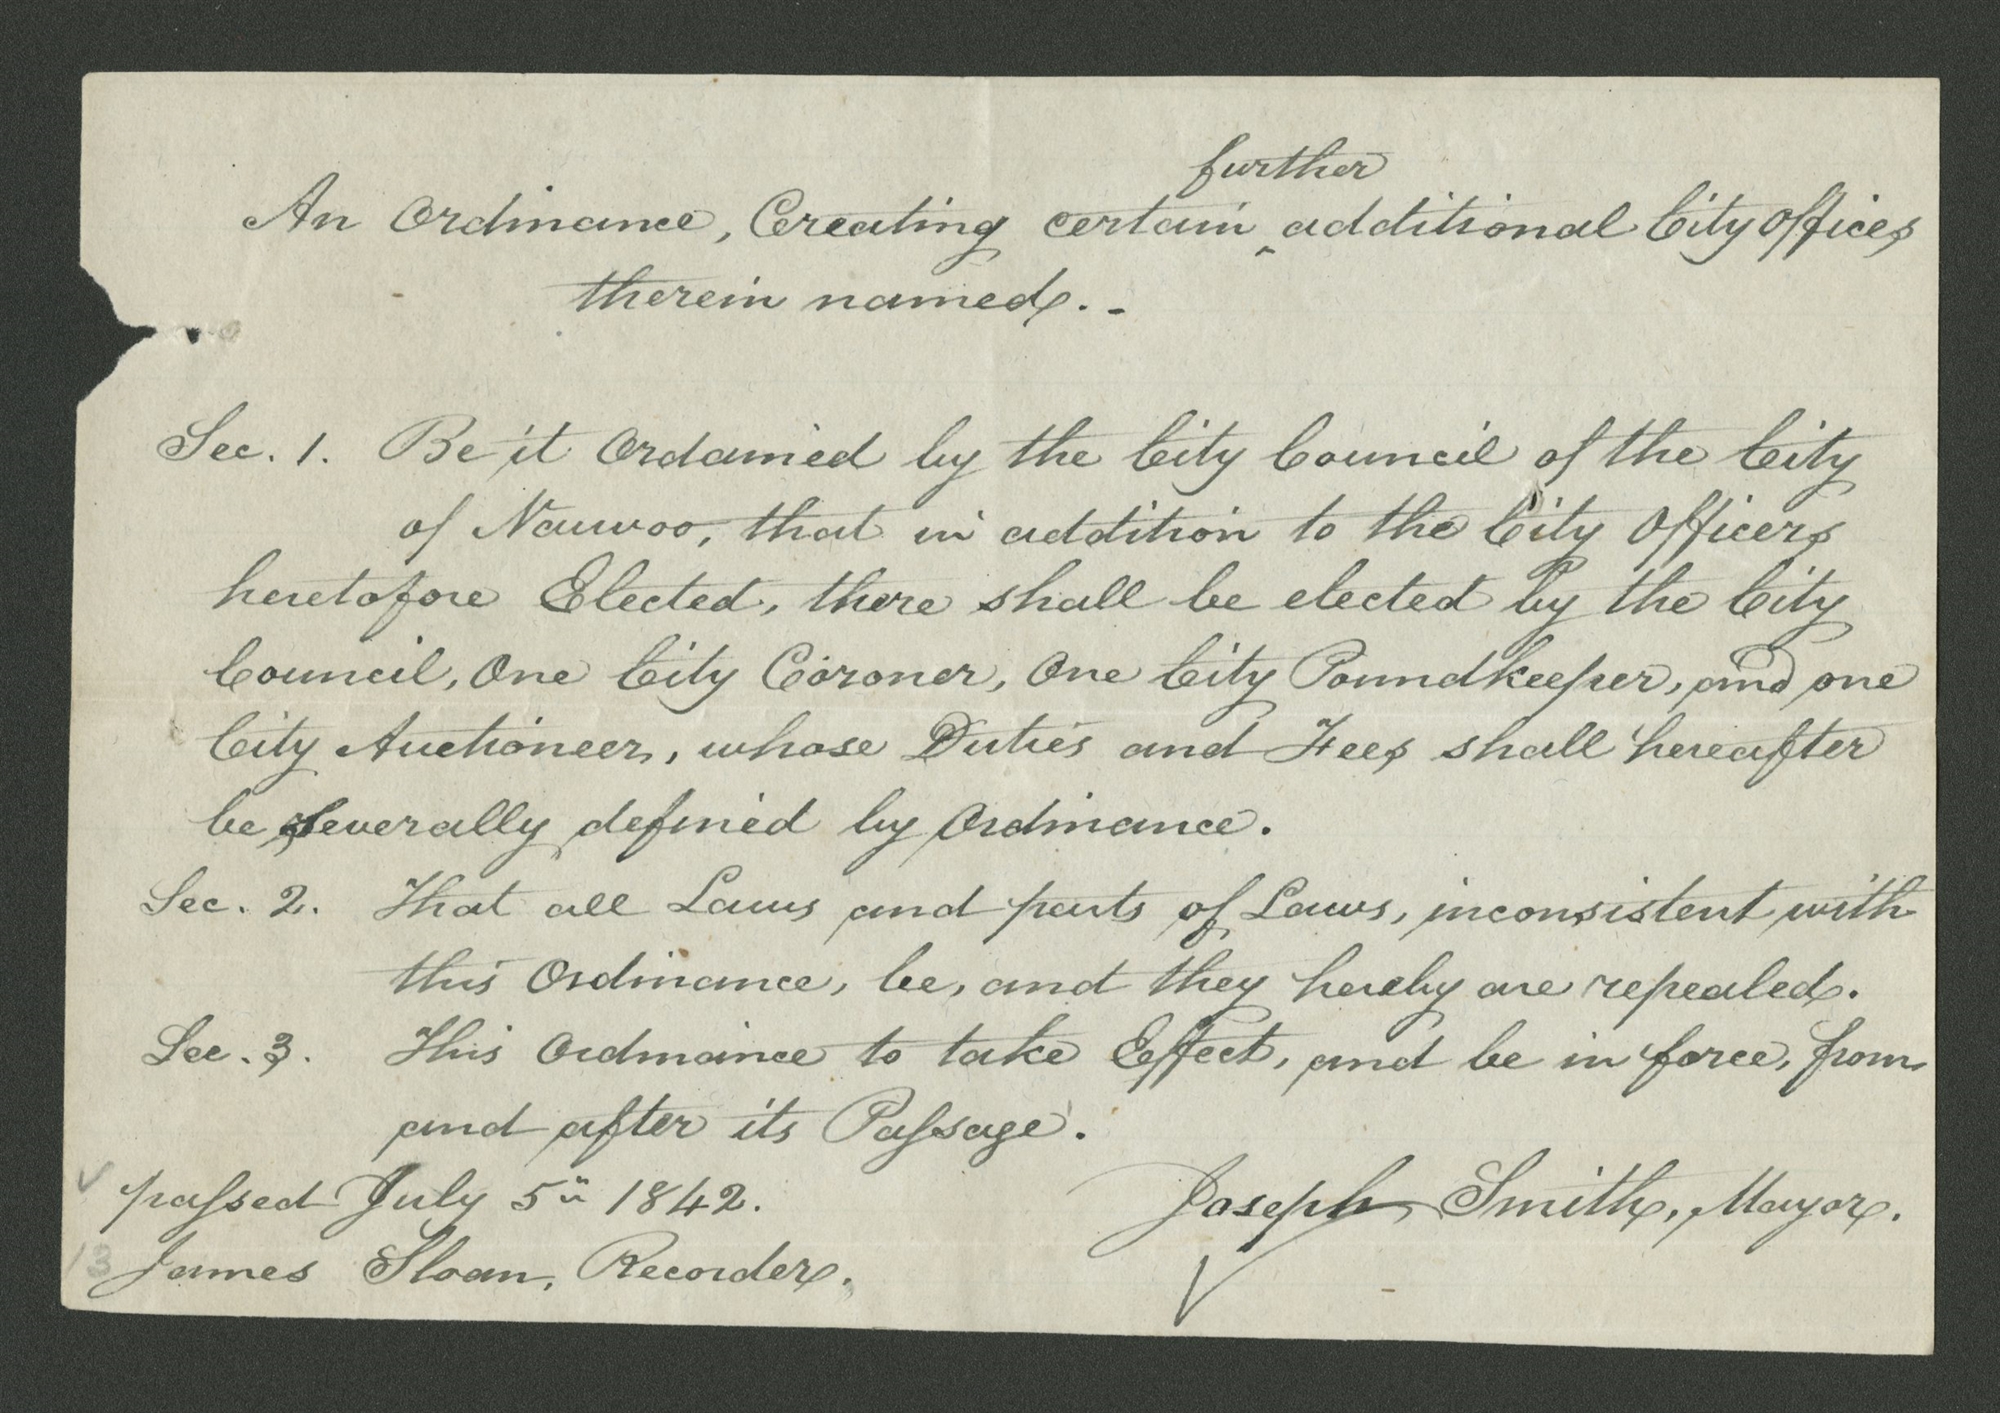 further
An Ordinance, Creating certain ‸ additional City Offices
therein named. -
Sec. 1. Be it Ordained by the City Council of the City
of Nauvoo, that in addition to the City Officers
heretofore Elected, there shall be elected by the City
Council, One City Coroner, One City Poundkeeper, and one
City Auctioneer, whose Duties and Fees shall hereafter
be severally defined by Ordinance.
Sec. 2. That all Laws and parts of Laws, inconsistent with
this Ordinance, be, and they hereby are repealed.
Sec. 3. This Ordinance to take Effect, and be in force, from
and after its Passage.
passed July 5th 1842. Joseph Smith, Mayor.
James Sloan, Recorder.